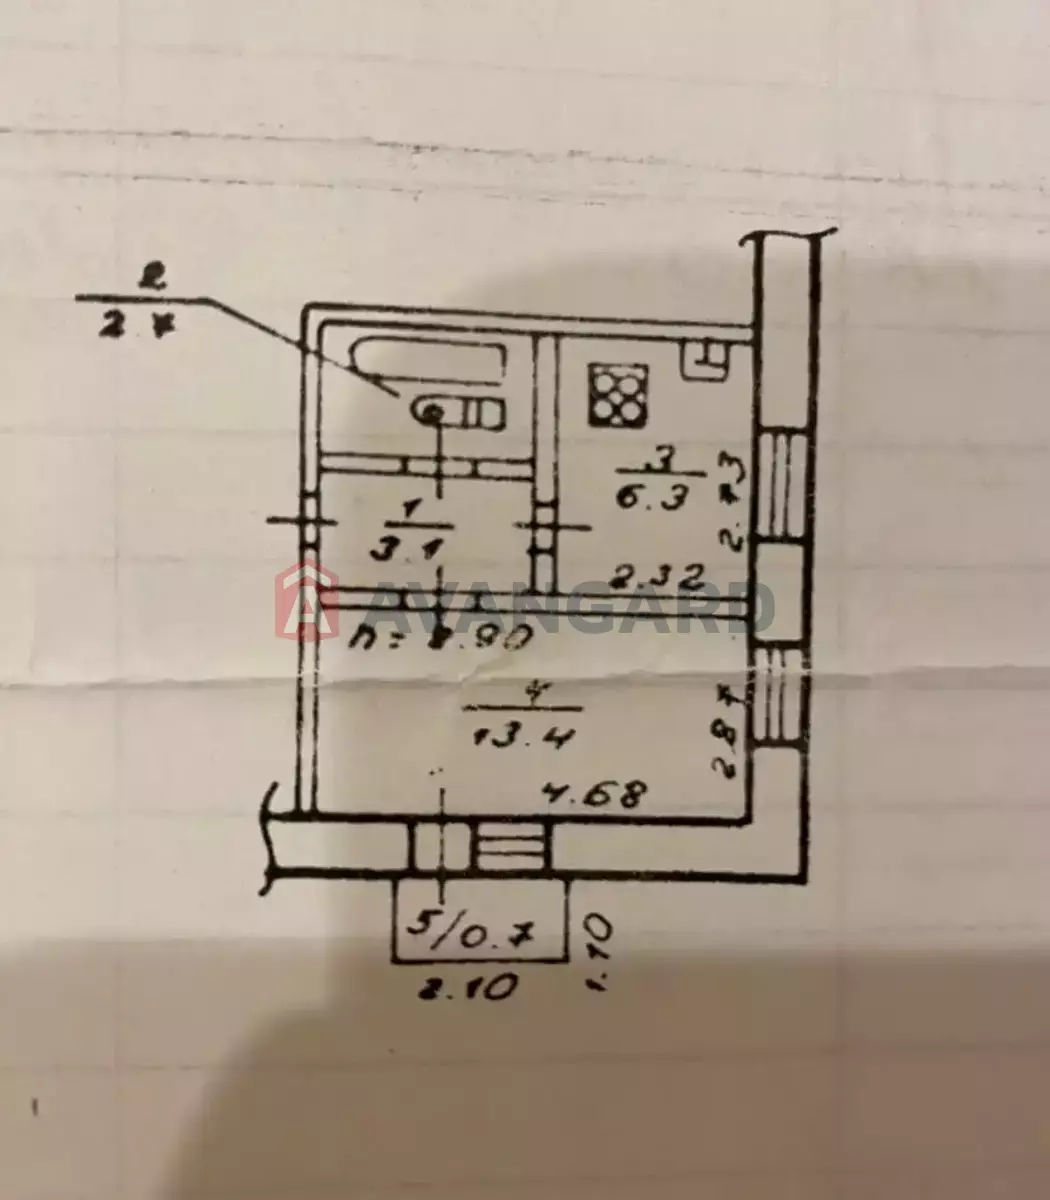 2
2.7
3
6.3
2.73
1
3.1
2.32
AVANGARD
h=2.90
4
13.4
2.87
4.68
5/0.7
1.10
2.10